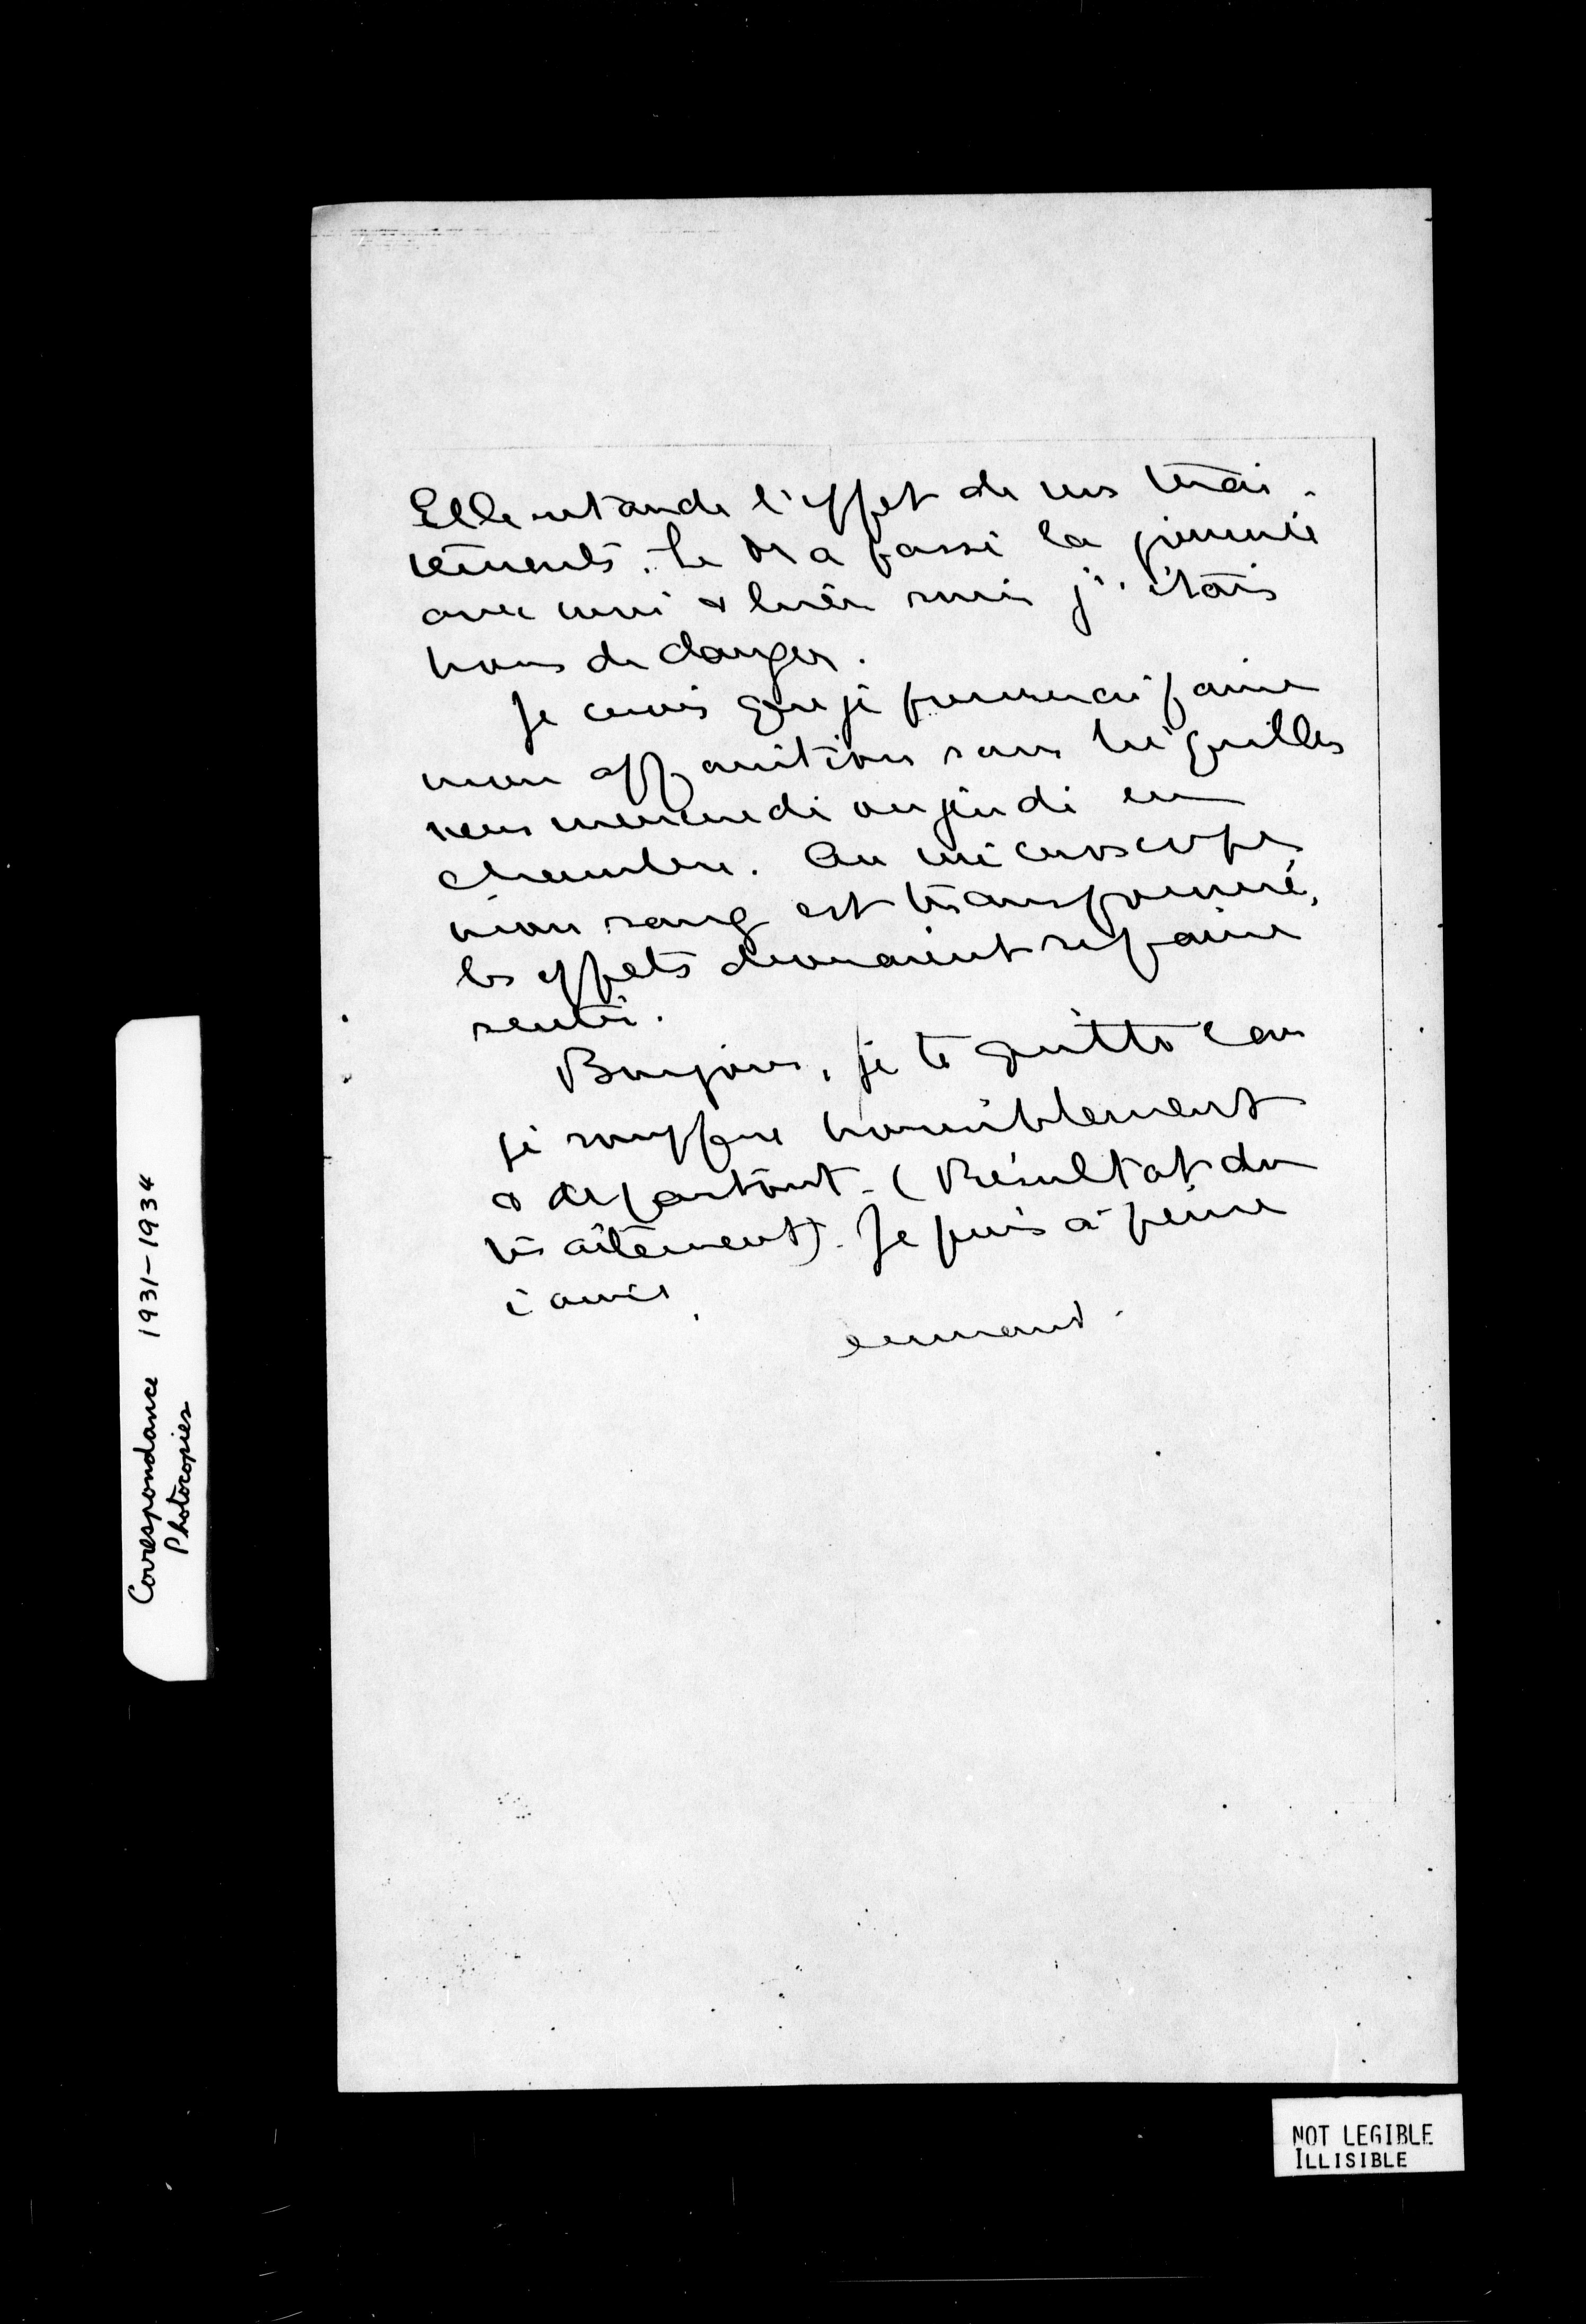 Elle retarde l'effet de ces trai-
tements. Le Dr a passé la journée
avec moi & hier soir j'étais
hors de danger.
Je crois que je pourrai faire
mon apparition sans béquilles
vers mercredi ou jeudi en
chambre. Au microscope,
mon sang est transformé,
les effets devraient se faire
sentir.
Bonjour, je te quitte car
je souffre horriblement
& de partout. (Résultat du
traitement). Je puis à peine
écrire.
Correspondance 1931-1934
Photocopies
NOT LEGIBLE
ILLISIBLE